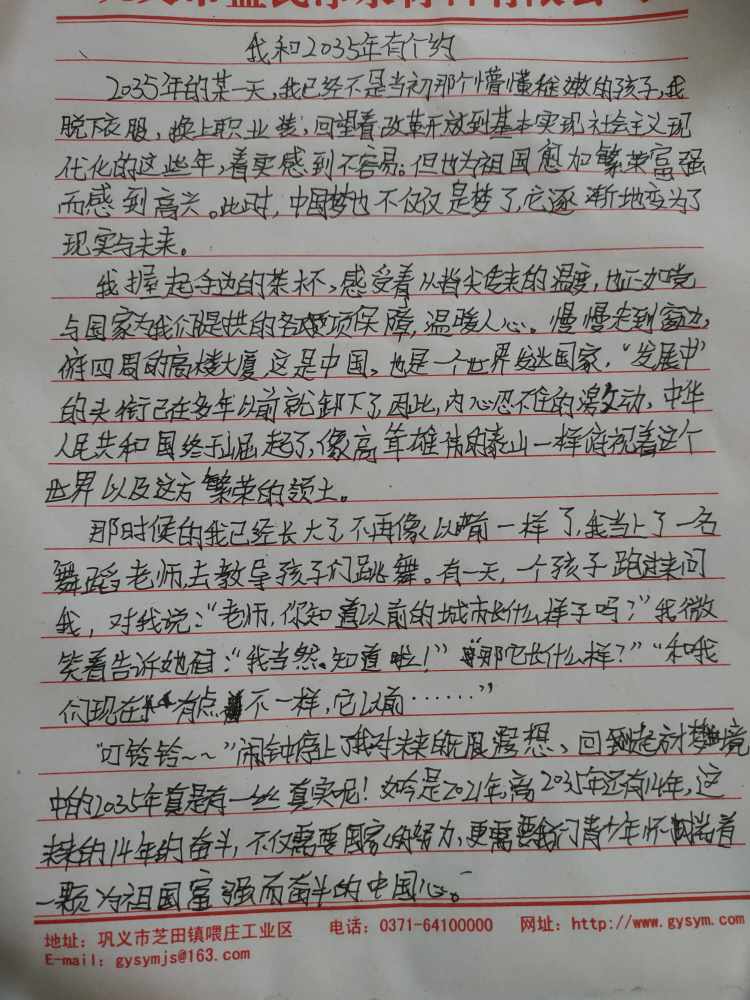 巩义市益民净水材料有限公司
我和2035年有个约
2035年的某一天,我已经不是当初那个懵懂稚嫩的孩子,我
脱下衣服,换上职业装,回望着改革开放到基本实现社会主义现
代化的这些年,着实感到不容易。但也为祖国愈加繁荣富强
而感到高兴。此时,中国梦也不仅仅是梦了,它逐渐地变为了
现实与未来。
我握起手边的茶杯,感受着从指尖传来的温度,也正如党
与国家为我们提供的各项保障,温暖人心。慢慢走到窗边,
俯四周的高楼大厦,这是中国,也是一个世界发达国家,“发展中”
的头衔已在多年以前就卸下了,因此,内心忍不住的激动,中华
人民共和国终于崛起了,像高耸雄伟的泰山一样俯视着这个
世界以及这方繁荣的领土。
那时候的我已经长大了,不再像以前一样了,我当上了一名
舞蹈老师,去教导孩子们跳舞。有一天,一个孩子跑过来问
我,对我说:“老师,你知道以前的城市长什么样子吗?”我微
笑着告诉她:“我当然知道啦!”“那它长什么样?”“和我
们现在有点不一样,它以前……”
“叮铃铃~~”闹钟停止了我对未来的遐想,回到起对梦境
中的2035年真是有一丝真实呢!如今是2021年,离2035年还有14年,这
未来的14年的奋斗,不仅需要国家的努力,更需要我们青少年怀揣着
一颗为祖国富强而奋斗的中国心。
地址:巩义市芝田镇喂庄工业区 电话:0371-64100000 网址:http://www.gysym.com
E-mail:gysymjs@163.com